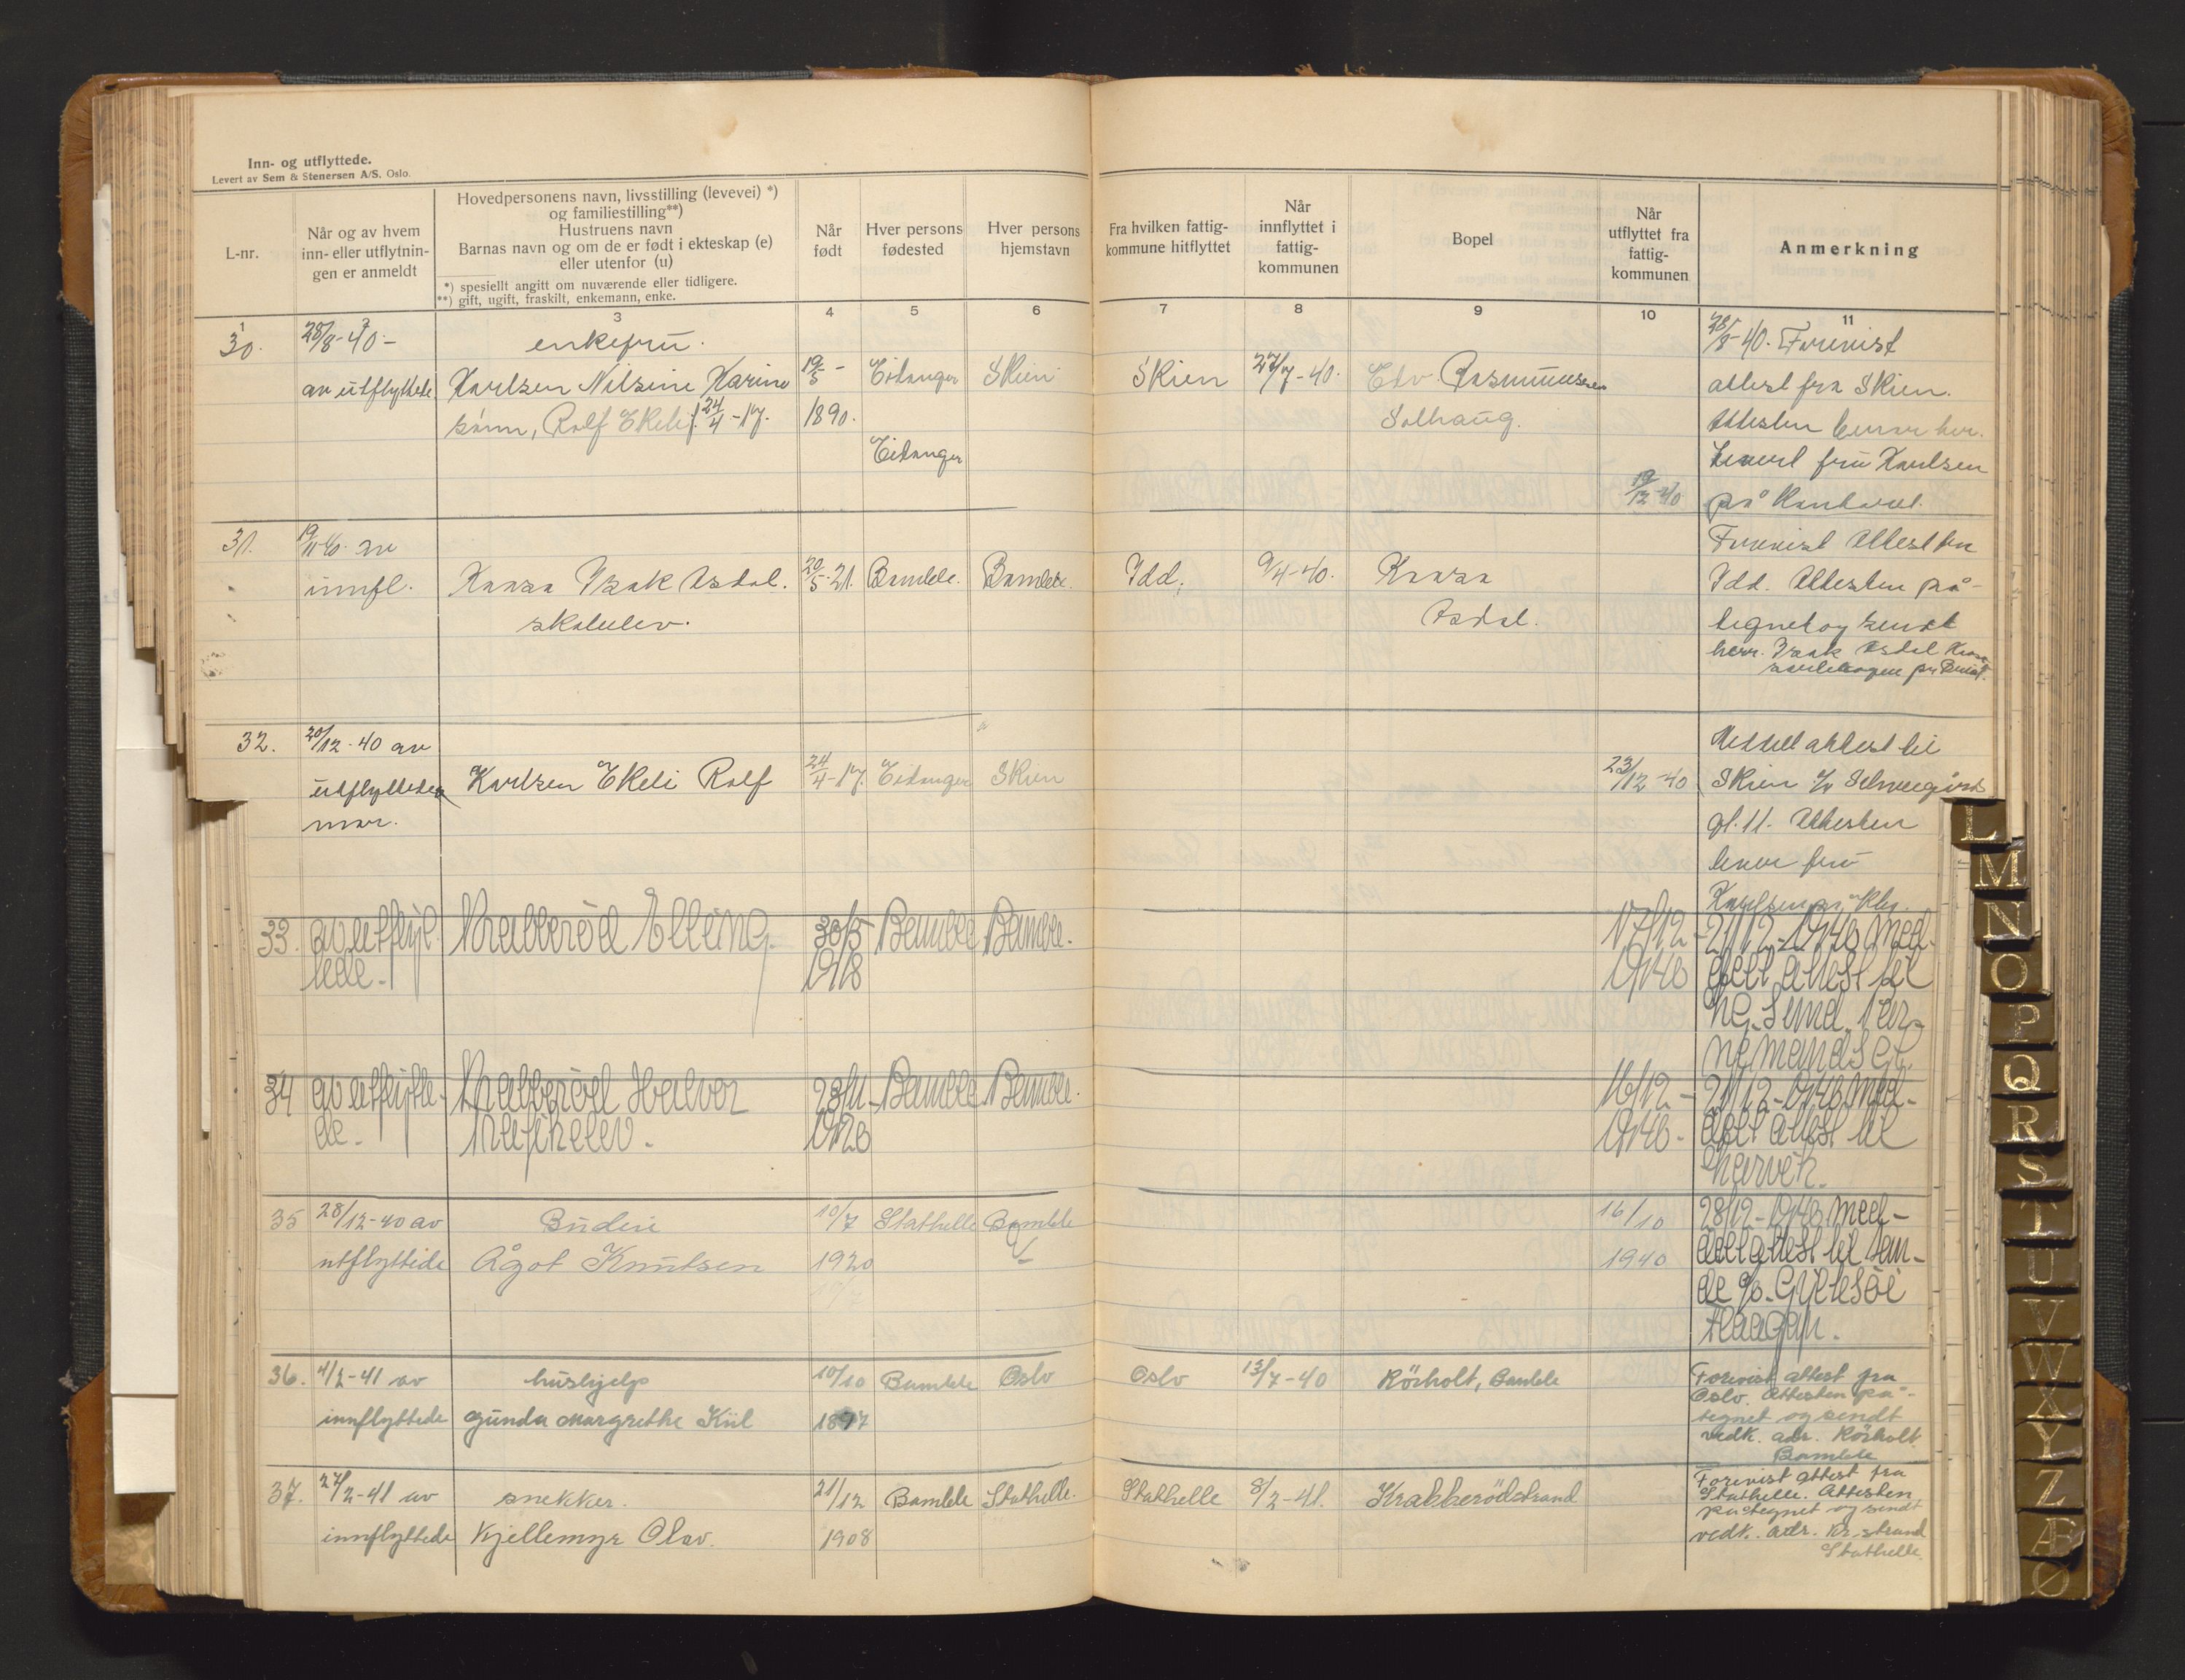 Inn- og utflyttede.
Levert av Sem & Stenersen A/S. Oslo.
L-nr.
Når og av hvem
inn- eller utflytnin-
gen er anmeldt
Hovedpersonens navn, livsstilling (levevei) *)
og familiestilling**)
Hustruens navn
Barnas navn og om de er født i ekteskap (e)
eller utenfor (u)
*) spesiellt angitt om nuværende eller tidligere.
**) gift, ugift, fraskilt, enkemann, enke.
Når
født
Hver persons
fødested
Hver persons
hjemstavn
Fra hvilken fattig-
kommune hitflyttet
Når
innflyttet i
fattig-
kommunen
Bopel
Når
utflyttet fra
fattig-
kommunen
Anmerkning
1 2 3 4 5 6 7 8 9 10 11
30. 28/8-40- enkefru. 28/8-40. Forevist
av utflyttede Karlsen Nilsine Karine 19/5- Eidanger Skien Skien 27/7-40. Edv. Rasmussen attest fra Skien.
sønn, Rolf Ekeli f. 24/4-17. 1890. Solhaug. Attesten beror her.
Eidanger Levert fru Karlsen
19/12-40 på Kontoret.
31. 19/11-40. av Forevist Attest fra
innfl. Isak Asdal. 20/5-21. Bamble. Bamble. Idd. 9/4-40. Idd. Attesten på-
skoleelev. Asdal. tegnet og sendt
herr. Isak Asdal
32. 20/12-40 av Meddelt attest til
utflytteden Karlsen Ekeli Rolf 24/4-17. Eidanger Skien 23/12-40 Skien
mor. gt. 11. Attesten
lever fru
Karlsen
33. av utflyt- Krabberød Elling. 30/5- Bamble Bamble. 17/12- 21/12-1940 med-
tede- 1918 1940 delt attest til
34 av utflytte- Krabberød Halvor 28/11- Bamble Bamble. 16/12- 21/12-1940 med-
de- 1920 1940- delt attest til
Narvik.
35 28/12-40 av Budeie 10/7 Stathelle Bamble 16/10 28/12-1940 med-
utflyttede Ågot Knutsen 1920 1940 delt attest til San-
de
36. 4/2-41 av hushjelp 10/10 Bamble Oslo Oslo 13/7-40 Rörholt, Bamble Forevist attest fra
Oslo. Attesten på-
innflyttede Gunda Margrethe Kiil 1897 tegnet og sendt
vedk. adr. Rörholt.
Bamble
37. 27/2-41 av snekker. 21/12 Bamble Stathelle. Stathelle 8/2-41. Krabberödstrand Forevist attest fra
Stathelle. Attesten
påtegnet og sendt
innflyttede Kjellemyr Olav. 1908 vedk. adr. Kr. strand
Stathelle.
L
M
N
O
P
Q
R
S
T
U
V
W
X
Y
Z
Æ
Ø